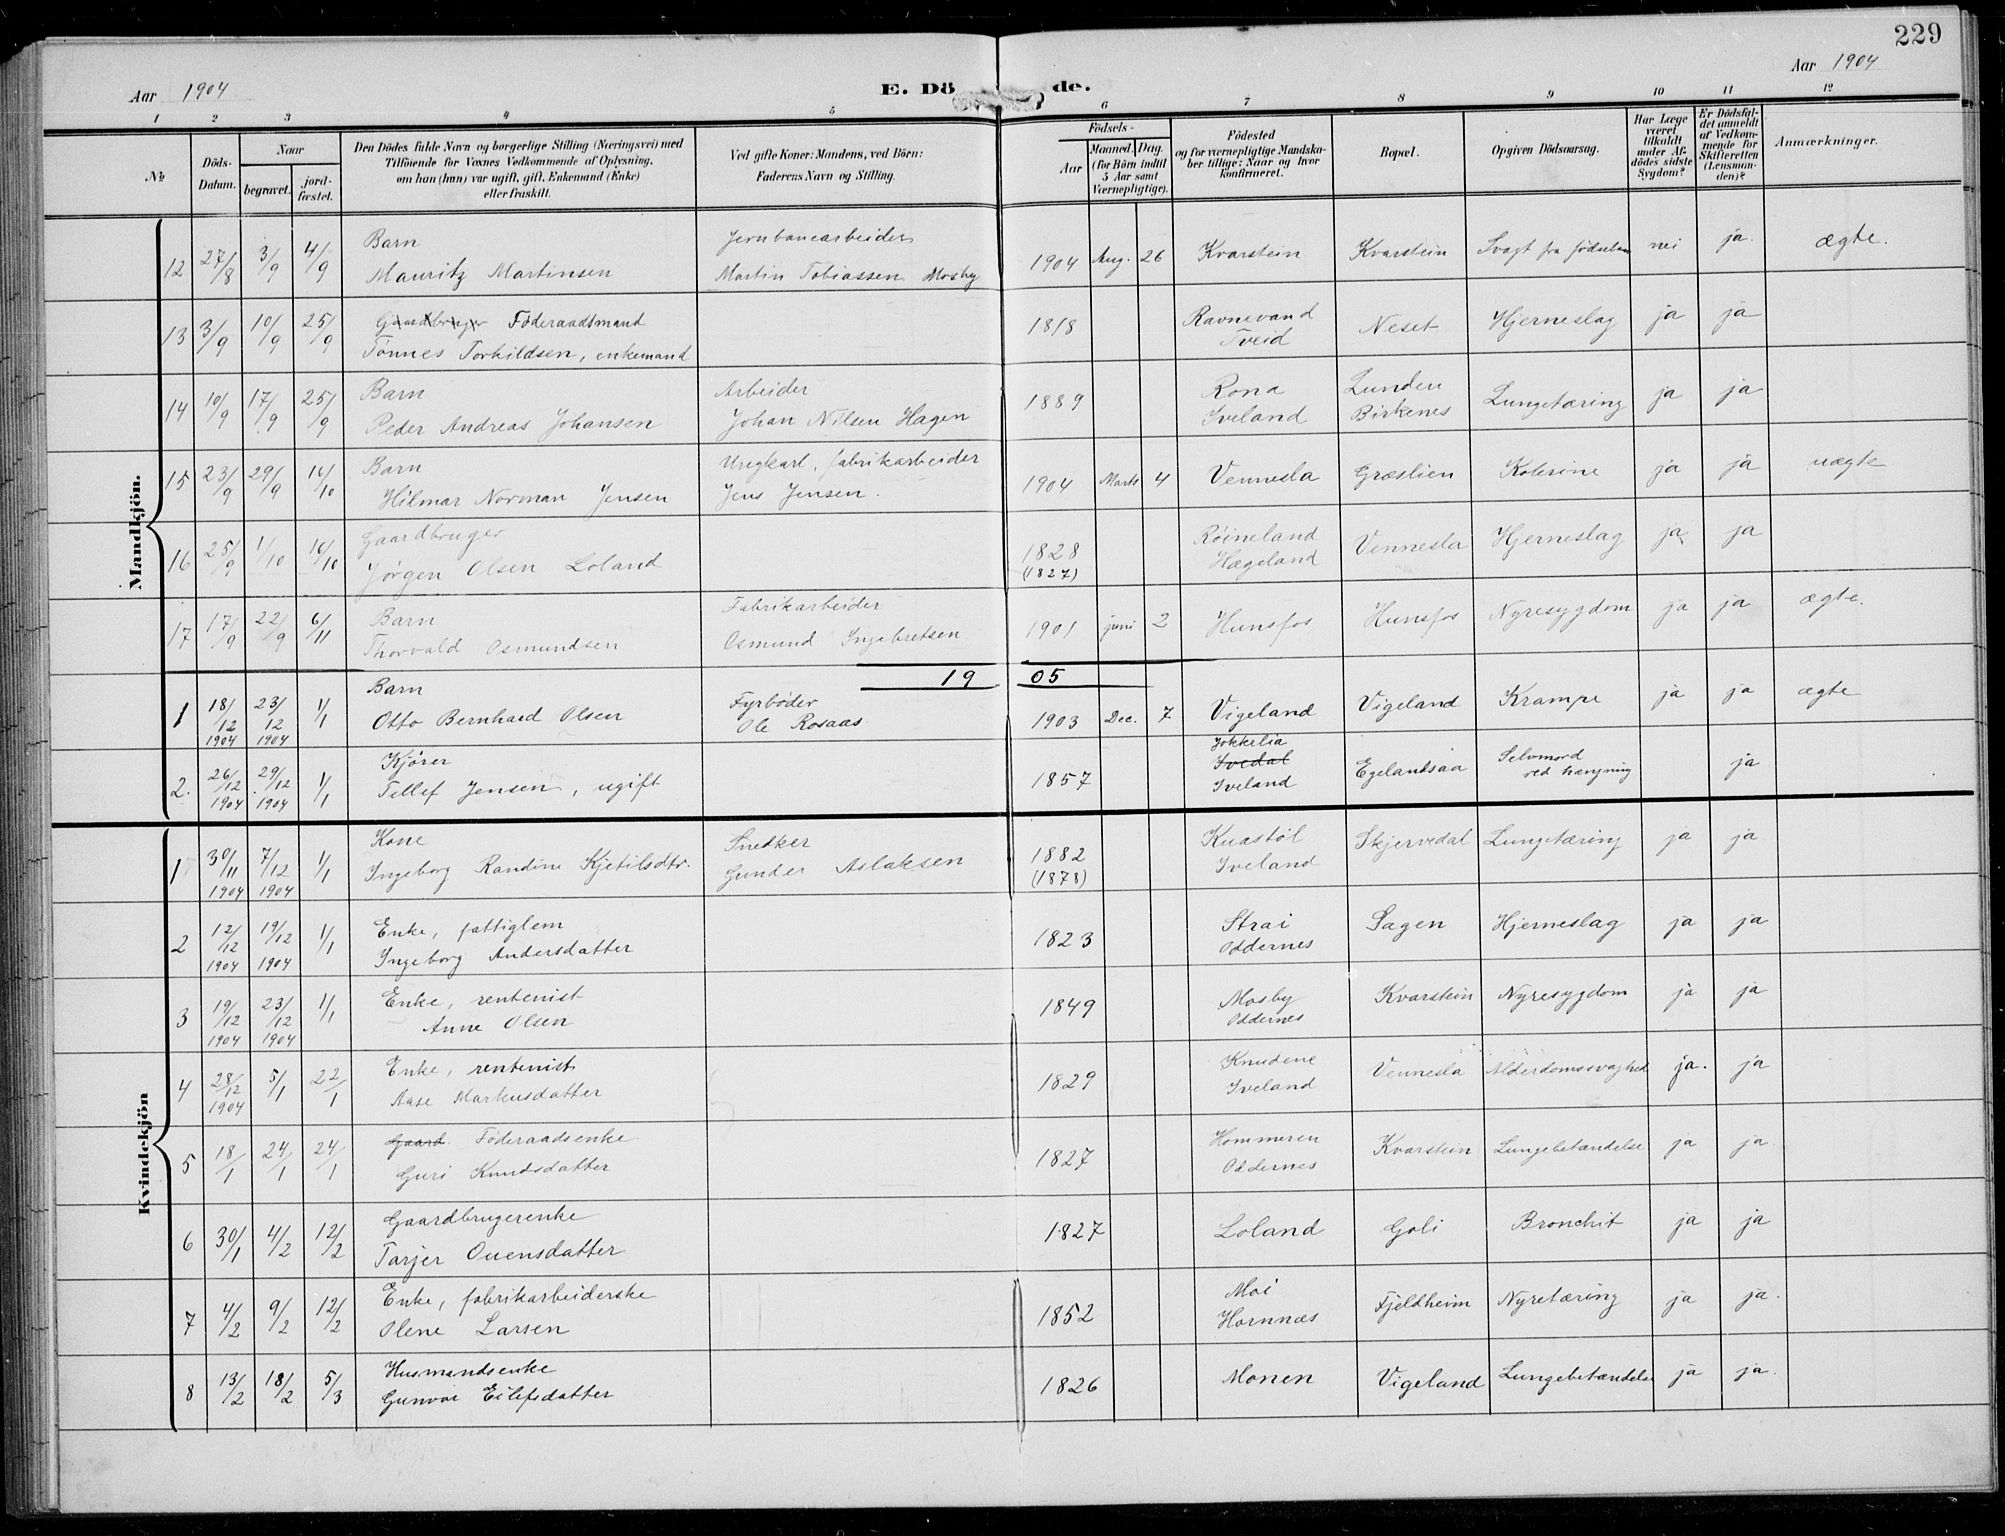 229
Aar 1904
E. Dö de.
Aar 1904
1 2 3 4 5 6 7 8 9 10 11 12
№
Döds-Datum.
Naar
begravet.
jordfæstet.
Den Dödes fulde Navn og borgerlige Stilling (Næringsvei) med
Tilföiende for Voxnes Vedkommende af Oplysning,
om han (hun) var ugift, gift, Enkemand (Enke)
eller fraskilt.
Ved gifte Koner: Mandens, ved Börn:
Faderens Navn og Stilling.
Födsels-
Aar
Maaned. Dag.
(for Börn indtil
5 Aar samt
Værnepligtige).
Födested
og for værnepligtige Mandskaber tillige: Naar og hvor
konfirmeret.
Bopæl.
Opgiven Dödsaarsag.
Har Læge
været
tilkaldt
under Afdödes sidste
Sygdom?
Er Dödsfaldet anmeldt
af Vedkommende for
Skifteretten
(Lensmanden)?
Anmærkninger.
Mandkjön.
12 27/8 3/9 4/9 Barn Jernbanearbeider
Mauritz Martinsen Martin Tobiassen Mosby 1904 Aug. 26 Kvarstein Kvarstein Svagt fra födselen nei ja. ægte.
13 3/9 10/9 25/9 Gaardbruger Föderaadsmand
Tönnes Torkildsen, enkemand 1818 Ravnevand
Tveid Neset Hjerneslag ja ja
14 10/9 17/9 25/9 Barn Arbeider
Peder Andreas Johansen Johan Nilsen Hagen 1889 Rona
Iveland Lunden
Birkenes Lungetæring ja ja
15 23/9 29/9 16/10 Barn Ungkarl, fabrikarbeider
Hilmar Norman Jensen Jens Jensen. 1904 Marts 4 Vennesla Græslien Kolerine ja ja uægte
16 25/9 1/10 16/10 Gaardbruger
Jörgen Olsen Loland 1828
(1827) Röineland
Hægeland Vennesla Hjerneslag ja ja
17 17/9 22/9 6/11 Barn Fabrikarbeider
Thorvald Osmundsen Osmund Ingebretsen 1901 juni 2 Hunsfos Hunsfos Nyresygdom ja ja ægte.
19 05
1 18/12 1904 23/12 1904 1/1 Barn Fyrböder
Otto Bernhard Olsen Ole Rosaas 1903 Dec. 7 Vigeland Vigeland Krampe ja ja ægte
2. 26/12 1904 29/12 1904 1/1 Kjörer
Tellef Jensen, ugift 1857 Jokkelia
Ivedal
Iveland Egelandsaa Selvmord
ved hængning ja
Kvindekjön
1 30/11 1904 7/12 1904 1/1 Kone Snedker
Ingeborg Randine Kjetilsdtr. Gunder Aslaksen 1882
(1878) Knastöl
Iveland Skjervedal Lungetæring ja ja
2 12/12 1904 19/12 1904 1/1 Enke, fattiglem
Ingeborg Andersdatter 1823 Strai
Oddernes Sagen Hjerneslag ja ja
3 19/12 1904 23/12 1904 1/1 Enke, rentenist
Anne Olsen 1849 Mosby
Oddernes Kvarstein Nyresygdom ja ja
4 28/12 1904 5/1 22/1 Enke, rentenist
Aase Markusdatter 1829 Knudene
Iveland Vennesla Alderdomssvaghed ja. ja
5 18/1 24/1 24/1 Gaard Föderaadsenke
Guri Knudsdatter 1827 Hommeren
Oddernes Kvarstein Lungebetændelse ja ja.
6 30/1 4/2 12/2 Gaardbrugerenke
Tarjer Ouensdatter 1827 Loland Goli Bronchit ja ja
7 4/2 9/2 12/2 Enke, fabrikarbeiderske
Olene Larsen 1852 Moi
Hornnæs Fjeldheim Nyretæring ja ja.
8 13/2 18/2 5/3 Husmandsenke
Gunvor Eilefsdatter 1826 Monen Vigeland Lungebetændelse ja ja.